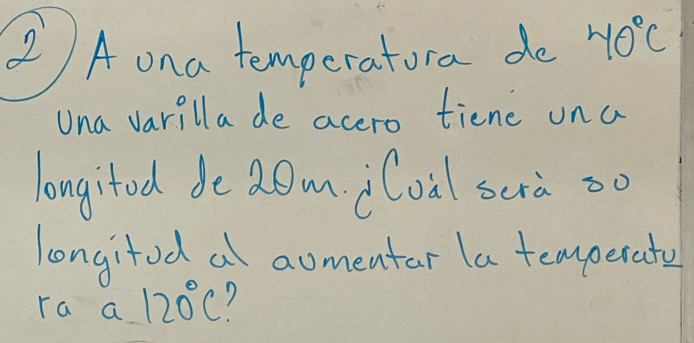 2) A una temperatura de 40°C
una varilla de acero tiene una
longitud de 20m. ¿Cuál será su
longitud al aumentar la temperatu
ra a 120°C?